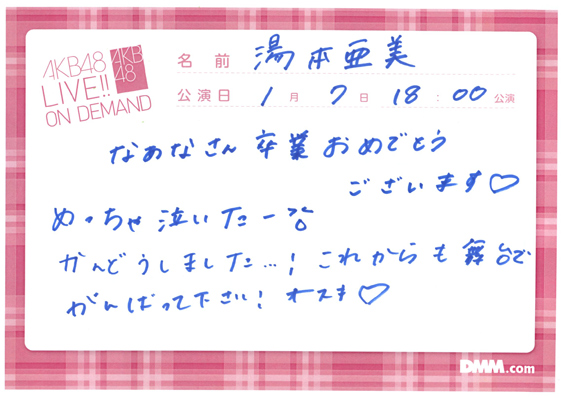 AKB48
LIVE!!
ON DEMAND
AKB
48
名前 湯本亜美
公演日 1月7日 18:00公演
なぁなさん卒業おめでとう
ございます♡
めっちゃ泣いたー
かんどうしました…! これからも舞台で
がんばって下さい! オスキ♡
DMM.com